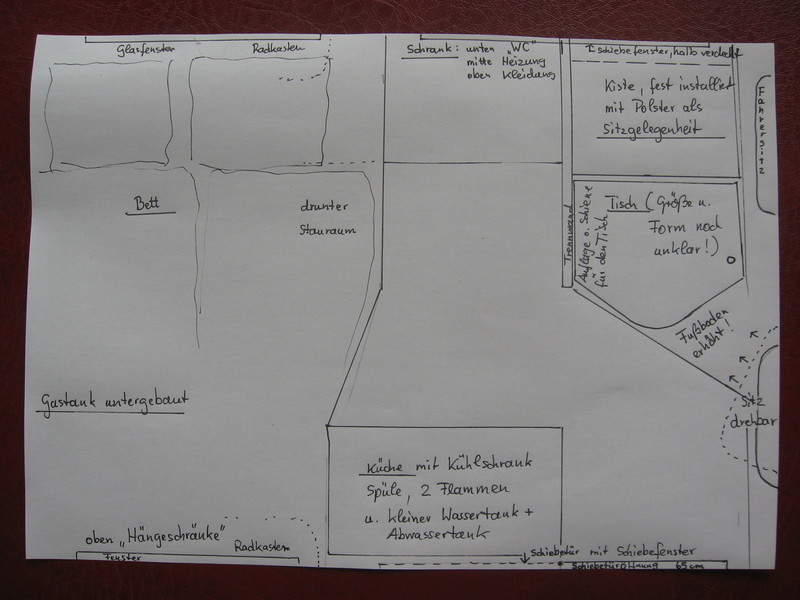 Glasfenster
Radkasten
Schrank: unten "WC"
mitte Heizung
oben Kleidung
Schiebefenster, halb verdeckt
Kiste, fest installiert
mit Polster als
Sitzgelegenheit
Fahrersitz
Bett
drunter
Stauraum
Trennwand
Auflage o. Schiene
für den Tisch
Tisch (Größe u.
Form noch
unklar!)
Fußboden
erhöht!
Sitz
drehbar
Gastank untergebaut
Küche mit Kühlschrank
Spüle, 2 Flammen
u. kleiner Wassertank +
Abwassertank
oben "Hängeschränke"
Radkasten
Fenster
Schiebetür mit Schiebefenster
Schiebetüröffnung 65 cm